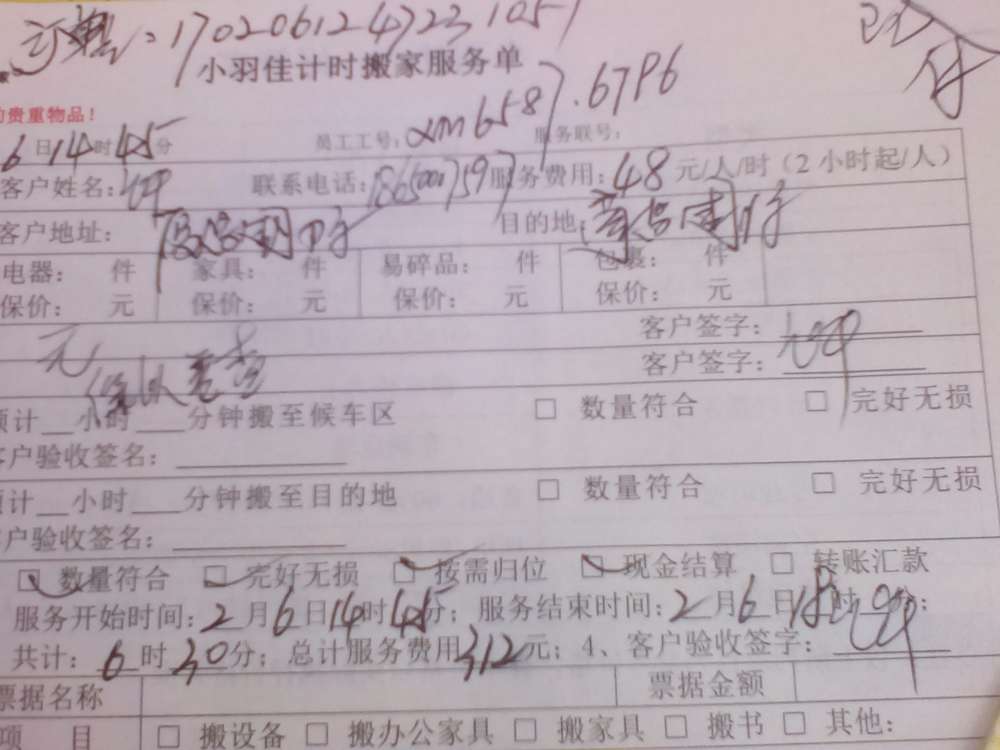 订单:1702061247231051
已付
小羽佳计时搬家服务单
的贵重物品!
6日14时45分 员工工号:xm6587.6796 服务联号:
客户姓名: 联系电话: 服务费用:48元/人/时(2小时起/人)
客户地址: 目的地:
电器: 件 家具: 件 易碎品: 件 包裹: 件
保价: 元 保价: 元 保价: 元 保价: 元
客户签字:
元 客户签字:
预计__小时___分钟搬至候车区 □ 数量符合 □ 完好无损
客户验收签名:
预计__小时___分钟搬至目的地 □ 数量符合 □ 完好无损
客户验收签名:
☑ 数量符合 ☑ 完好无损 ☑ 按需归位 ☑ 现金结算 □ 转账汇款
服务开始时间:2月6日14时45分;服务结束时间:2月6日18时
共计:6时30分;总计服务费用312元;4、客户验收签字:
票据名称 票据金额
项 目 □ 搬设备 □ 搬办公家具 □ 搬家具 □ 搬书 □ 其他: